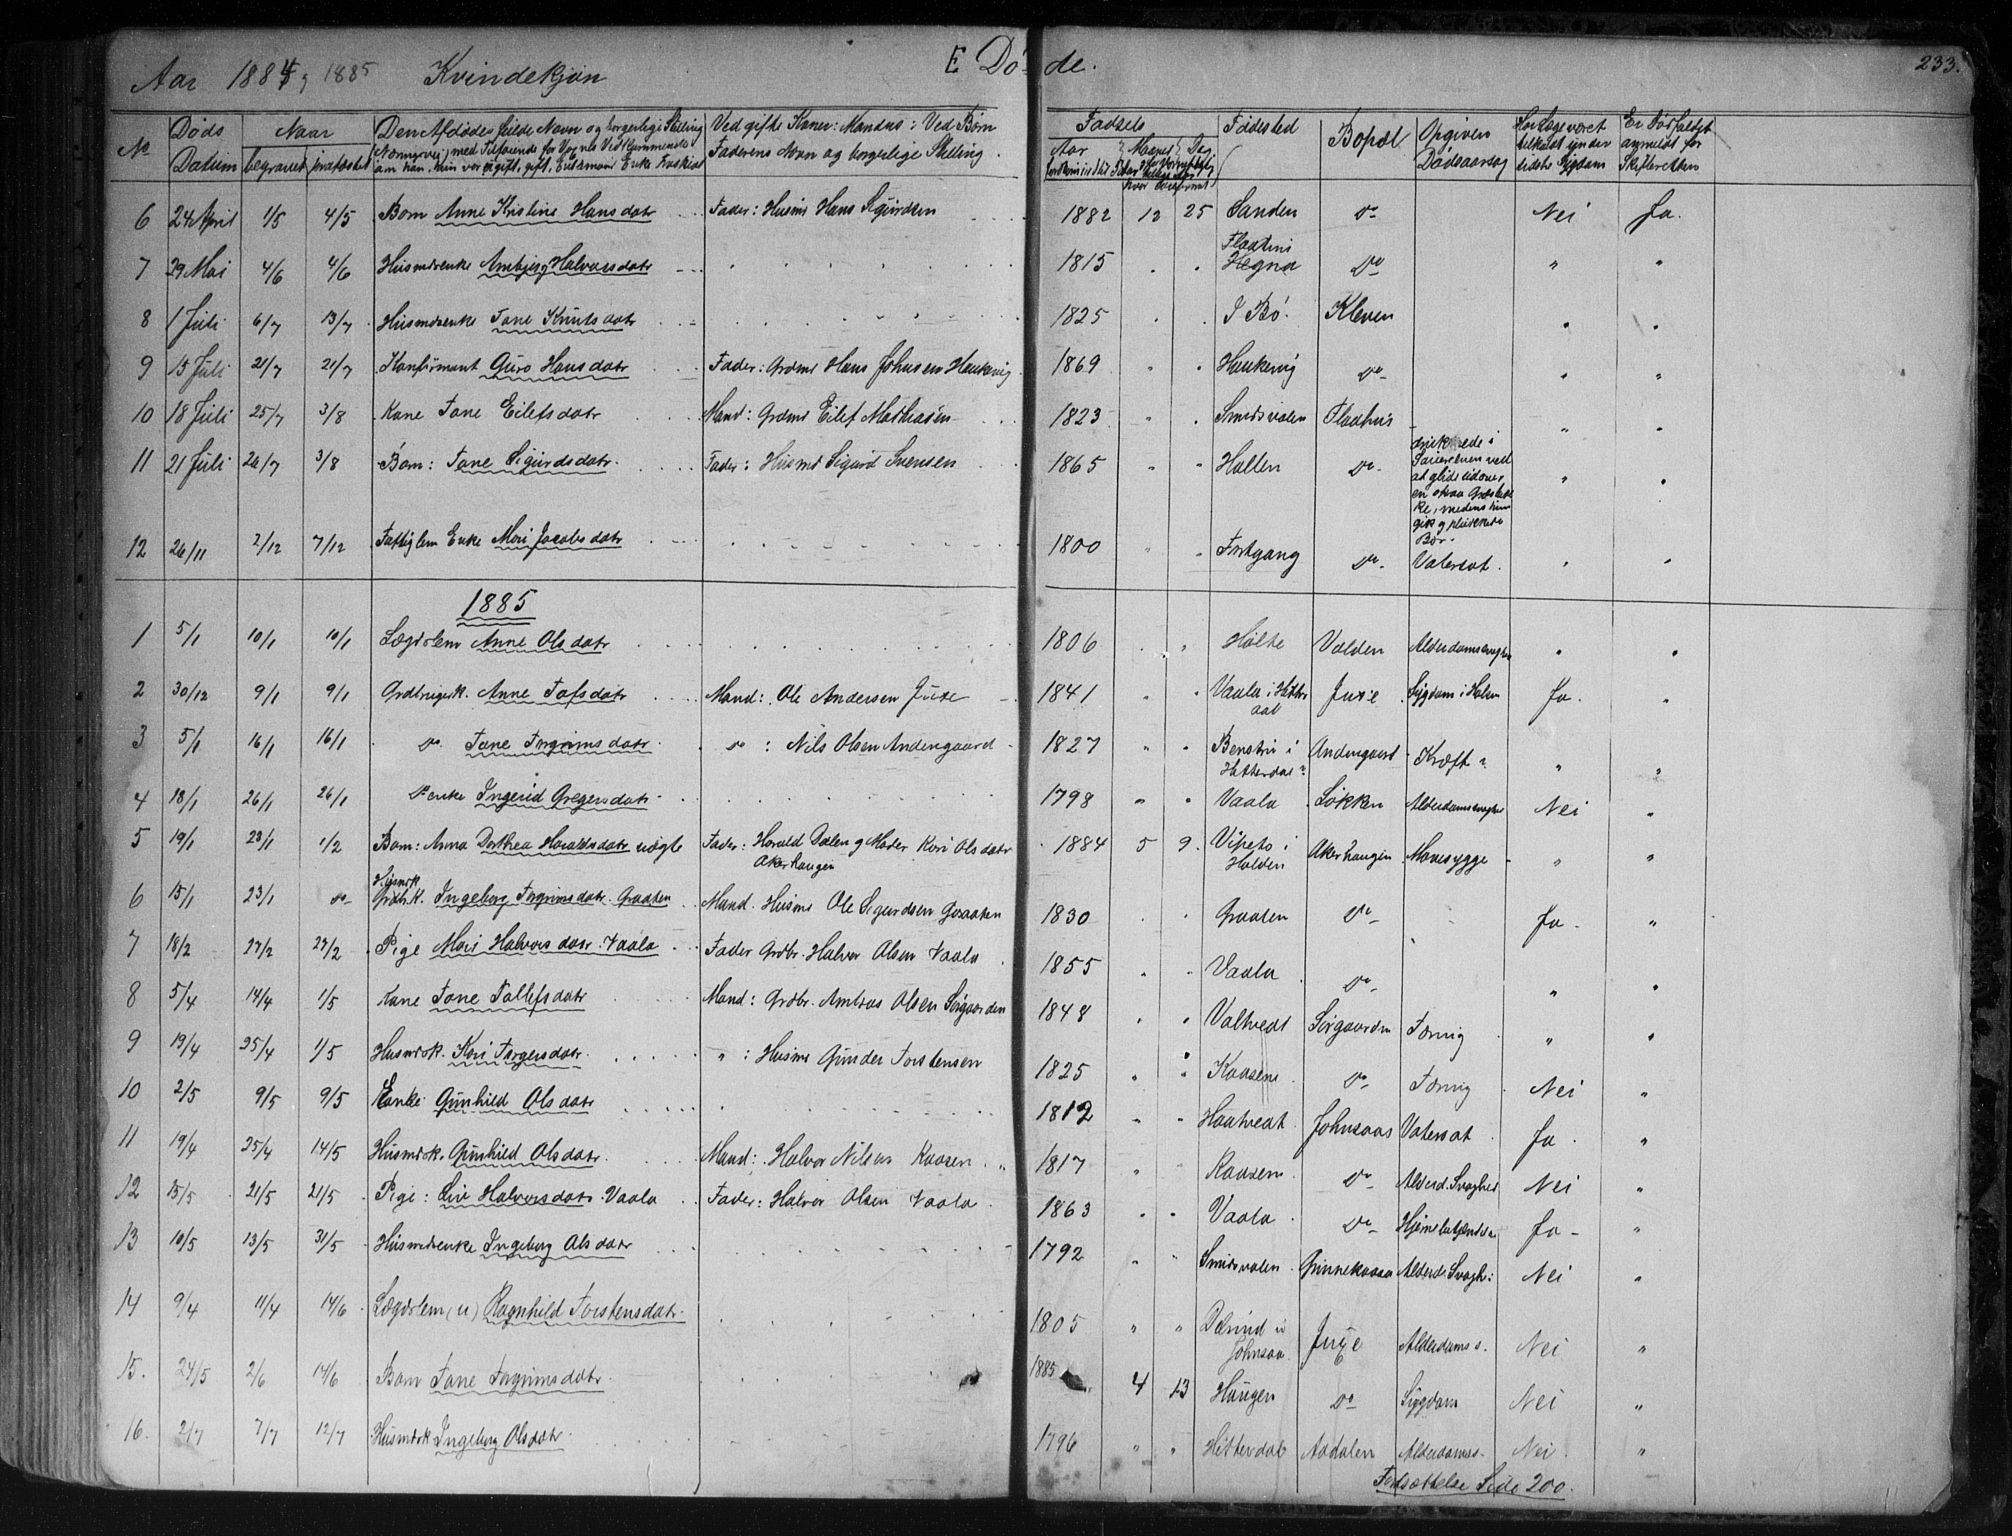 Aar 1884 og 1885 Kvindekjøn E Døde. 233.
No Døds Datum Naar begravet jordfæstet Den Afdødes fulde Navn og borgerlige Stilling Ved gifte Koner: Mandens: Ved Børn Faderens Navn og borgerlige Stilling. Fødsels Aar Maaned Dag Fødested Bopæl Opgiven Dødsaarsag Har Læge været tilkaldt under sidste Sygdom Er Dødsfaldet anmeldt for Skifteretten
6 24 April 1/5 4/5 Barn Anne Kristine Hansdatr Fader: Husmd Hans Sigurdsen 1882 12 25 Sanden Do Nei Ja.
7 29 Mai 4/6 4/6 Husmdsenke Ambjørg Halvorsdatr 1815 Flaatins Hegna Do " "
8 1 Juli 6/7 13/7 Husmdsenke Tone Knutsdatr 1825 I Bø. Kleven " "
9 15 Juli 21/7 21/7 Konfirmant Guro Hansdatr Fader: Grdmd Hans Johnsen Haukevig 1869 Haukevig Do " "
10 18 Juli 25/7 3/8 Kone Tone Eilefsdatr Mand: Grdmd Eilef Mathiasen 1823 Smedsvalen Flaahus " "
11 21 Juli 26/7 3/8 Barn: Tone Sigurdsdatr. Fader: Husmd Sigurd Svensen 1865 Hallen Do druknede i
Sauerelven ved
at glide udover
en skraa
medens hun
gik og plukkede
Bær.
12 26/11 2/12 7/12 Fattiglem Enke Mari Jacobsdatr 1800 Fortgang Do Vatersot. " "
1885
1 5/1 10/1 10/1 Lægdslem Anne Olsdatr 1806 Holte Valden Alderdomssvaghed " "
2 30/12 9/1 9/1 Grdbrugerk. Anne Tofsdatr Mand: Ole Andersen Juxe 1841 Vaala i Hitterdal Juxe Sygdom i Halsen Ja. "
3 5/1 16/1 16/1 Do Tone Torgrimsdatr. Do: Nils Olsen Andengaard 1827 Andengaard Kræft? " "
Hitterdal?
4 18/1 26/1 26/1 Do enke Ingerid Gregersdatr 1798 Vaala Løkken Alderdomssvaghed Nei "
5 19/1 23/1 1/2 Barn: Anna Dorthea Haraldsdatr uægte Fader: Harald Dalen og Moder Kari Olsdatr 1884 5 9. Vipeto i Akerhaugen Mavesyge " "
Akerhaugen Holden
6 15/1 23/1 Do Husmdk Grdbrk. Ingeborg Torgrimsdatr. Graaten Mand. Husmd Ole Sigurdsen Graaten 1830 Graaten Do Ja. "
7 18/2 27/2 27/2 Pige Mari Halvorsdatr. Vaala Fader Grdbr. Halvor Olsen Vaala 1855 Vaala Do " "
8 5/4 14/4 1/5 Kone Tone Tollefsdatr Mand: Grdbr. Ambros Olsen Sørgaarden 1848 Valtvedt Sørgaarden Tæring " "
9 19/4 25/4 1/5 Husmdsk. Kari Torgersdatr. ": Husmd Gunder Torstensen 1825 Kaasene Do Tæring Nei "
10 2/5 9/5 9/5 Enke Gunhild Olsdatr 1812 Haatvedt Johnsaas Vatersot Ja. "
11 19/4 25/4 14/5 Husmdsk. Gunhild Olsdatr. Mand: Halvor Nilsen Kaasen 1817 Kaasen Do Alderd. Svaghed Nei "
12 15/5 21/5 21/5 Pige: Liv Halvorsdatr. Vaala Fader: Halvor Olsen Vaala 1863 Vaala Do Hjernebetændelse Ja "
13 10/5 13/5 31/5 Husmdsenke Ingeborg Olsdatr 1792 Smedsvalen Grinnekaasa Alderds Svagh: Nei "
14 9/4 11/4 14/6 Lægdslem (u) Ragnhild Torstensdatr. 1805 Johnsaa Juxe Alderdoms s. Nei "
15. 24/5 2/6 14/6 Barn Tone Torgrimsdatr. 1885 4 23 Haugen Do Sygdom Nei "
16. 2/7 7/7 12/7 Husmdsk Ingeborg Olsdatr. 1796 Hitterdal Aadalen Alderdomss. Nei "
Fortsættelse Side 200.